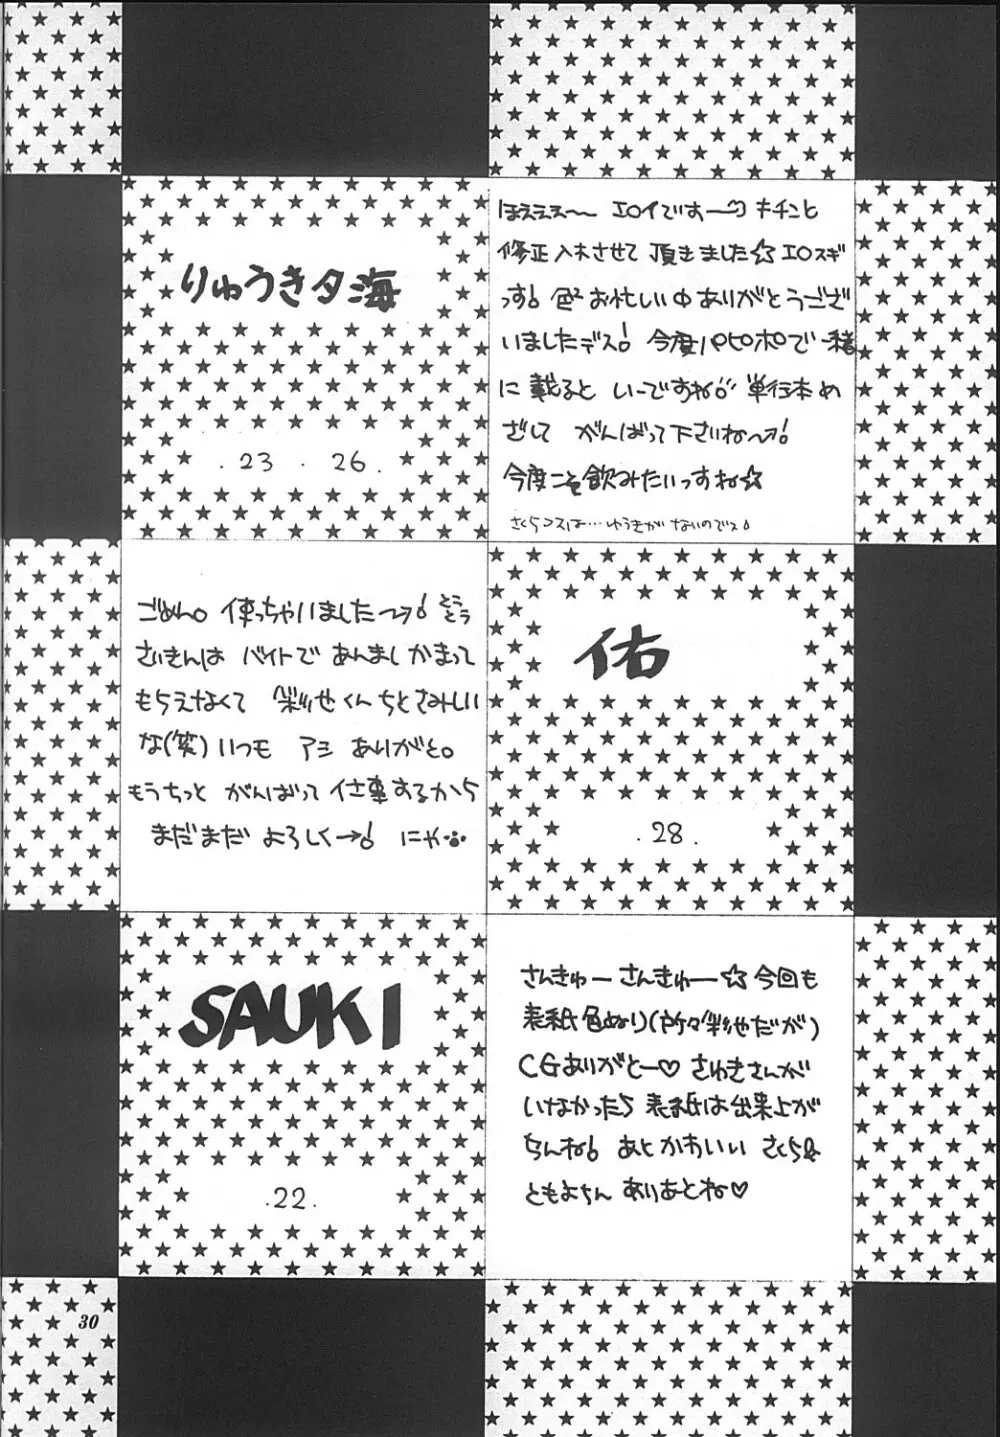 りゅうき夕海
.23 .26.
ほええぇ〜 エロイですー♡ キチンと
修正入れさせて 頂きました☆エロスギ
っす! 色々お忙しい中ありがとうござ
いましたデス! 今度パピポで一緒
に載ると いーですね♪ 単行本め
ざして がんばって下さいね〜!
今度こそ飲みたいっすね☆
さくらコスは…ゆうきがないのでス!
ごめん。使っちゃいました〜!どうも
さいきんは バイトで あんましかまって
もらえなくて 彩世くんちとさみしい
な(笑) いつも アシ ありがと。
もうちっと がんばって 仕事するから
まだまだ よろしく→! にゃ
佑
.28.
SAUKI
.22.
さんきゅー さんきゅー☆今回も
表紙色ぬり(所々彩世だが)
CGありがとー♡ さゆきさんが
いなかったら 表紙は出来上が
らんね! あと かわいい さくら&
ともよちん ありあとね♡
30